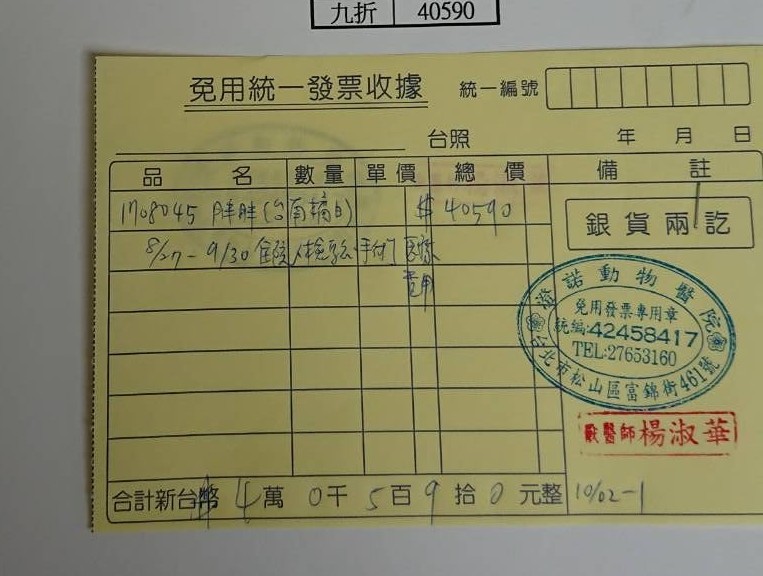 九折 40590
免用統一發票收據 統一編號
台照 年 月 日
品名 數量 單價 總價 備註
1708045 胖胖(台南橘白) $ 40590
8/27-9/30 手術 醫療
費用
銀貨兩訖
澄諾動物醫院
免用發票專用章
統編:42458417
TEL:27653160
台北市松山區富錦街461號
獸醫師楊淑華
合計新台幣 4萬0千5百9拾0元整 10/02-1